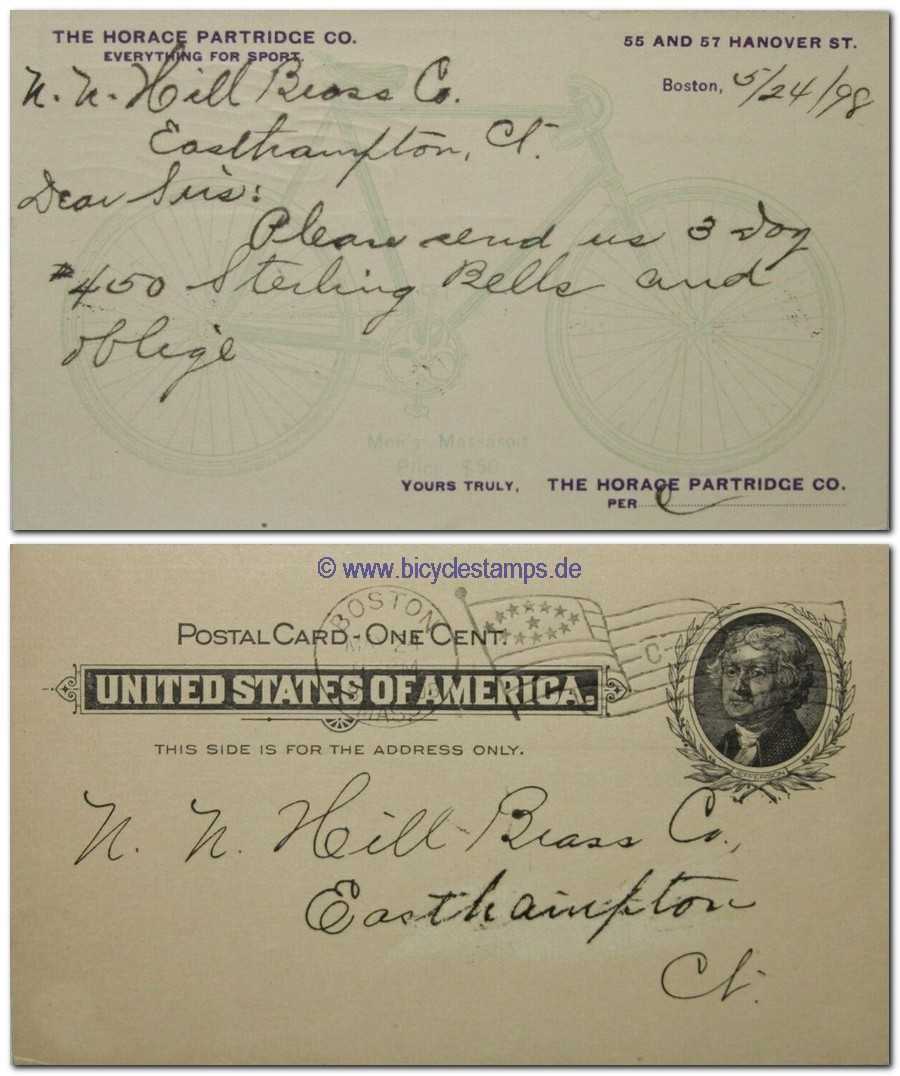 THE HORACE PARTRIDGE CO.
EVERYTHING FOR SPORT.
55 AND 57 HANOVER ST.
Boston, 5/24/98
N. N. Hill Brass Co.
Easthampton, Ct.
Dear Sirs:
Please send us 3 Doz
#450 Sterling Bells and
oblige
Men's Massasoit
Price $50
YOURS TRULY, THE HORACE PARTRIDGE CO.
PER
© www.bicyclestamps.de
BOSTON
MASS
C
POSTAL CARD - ONE CENT.
UNITED STATES OF AMERICA.
THIS SIDE IS FOR THE ADDRESS ONLY.
JEFFERSON
N. N. Hill Brass Co.,
Easthampton
Ct.